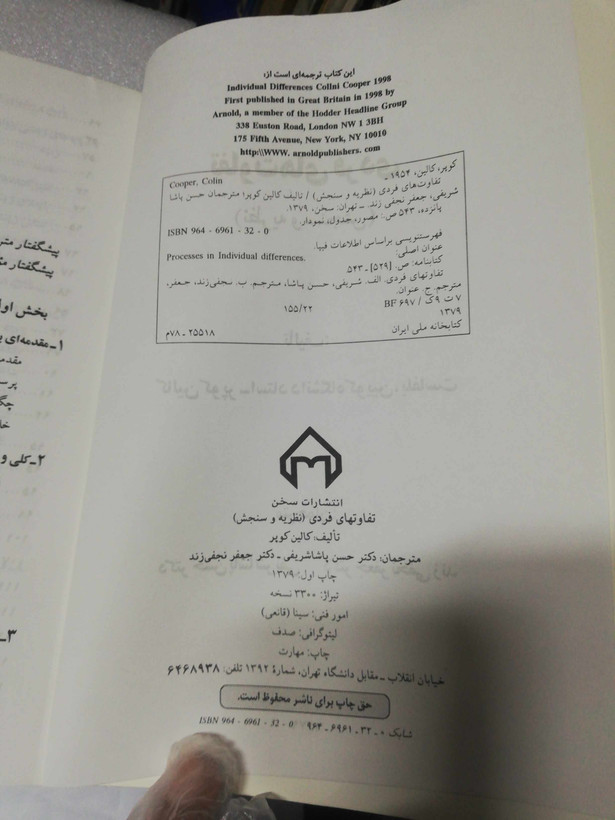 این کتاب ترجمه‌ای است از:
Individual Differences Collni Cooper 1998
First published in Great Britain in 1998 by
Arnold, a member of the Hodder Headline Group
338 Euston Road, London NW 1 3BH
175 Fifth Avenue, New York, NY, 10010
http:\\WWW. arnoldpublishers. com
کوپر، کالین، ۱۹۵۴ ـ
Cooper, Colin
تفاوت‌های فردی (نظریه و سنجش) / تالیف کالین کوپر؛ مترجمان حسن پاشا
شریفی، جعفر نجفی زند. ـ تهران: سخن، ۱۳۷۹.
پانزده، ۵۴۳ ص: مصور، جدول، نمودار.
ISBN 964 - 6961 - 32 - 0
فهرستنویسی براساس اطلاعات فیپا.
عنوان اصلی:
Processes in Individual differences.
کتابنامه: ص. [۵۲۹] ـ ۵۴۳
۱. تفاوتهای فردی. الف. شریفی، حسن پاشا، مترجم. ب. نجفی‌زند، جعفر،
مترجم. ج. عنوان.
۷ ت ۹ ک / BF ۶۹۷
۱۵۵/۲۲
۱۳۷۹
کتابخانه ملی ایران
۷۸ـ۲۵۵۱۸م
انتشارات سخن
تفاوتهای فردی (نظریه و سنجش)
تألیف: کالین کوپر
مترجمان: دکتر حسن پاشاشریفی ـ دکتر جعفر نجفی‌زند
چاپ اول: ۱۳۷۹
تیراژ: ۳۳۰۰ نسخه
امور فنی: سینا (قانعی)
لیتوگرافی: صدف
چاپ: مهارت
خیابان انقلاب ـ مقابل دانشگاه تهران، شمارهٔ ۱۳۹۲ تلفن: ۶۴۶۸۹۳۸
حق چاپ برای ناشر محفوظ است.
شابک ۰ ـ ۳۲ ـ ۶۹۶۱ ـ ۹۶۴ ISBN 964 - 6961 - 32 - 0
پیشگفتار
پیشگفتار
بخش اول
۱ـ مقدمه‌ای
مقدمه
۲ـ کلی و
۳ـ